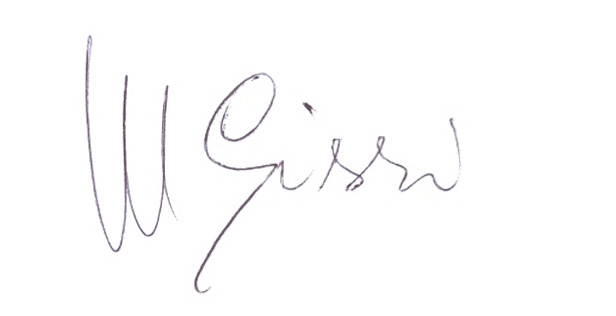 M Gissi